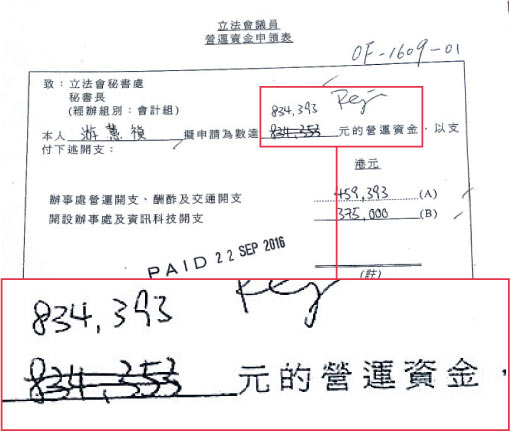 立法會議員
營運資金申領表
OF-1609-01
致：立法會秘書處
秘書長
(經辦組別：會計組)
834,393 Regi
本人 游蕙禎 擬申請為數達 834,353 元的營運資金，以支
付下述開支：
港元
辦事處營運開支、酬酢及交通開支 459,393 (A)
開設辦事處及資訊科技開支 375,000 (B)
PAID 22 SEP 2016
(註)
834,393
834,353 元的營運資金，